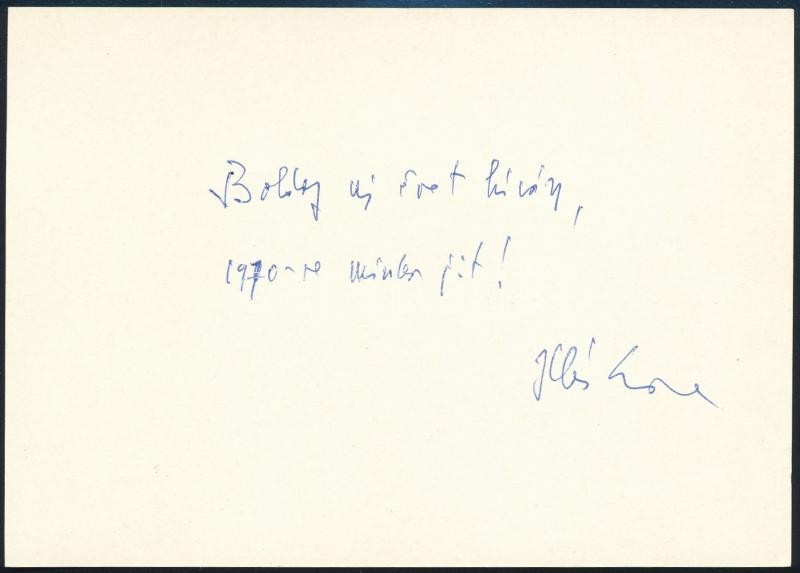 Boldog uj évet kíván,
1970-re minden jót!
Illés